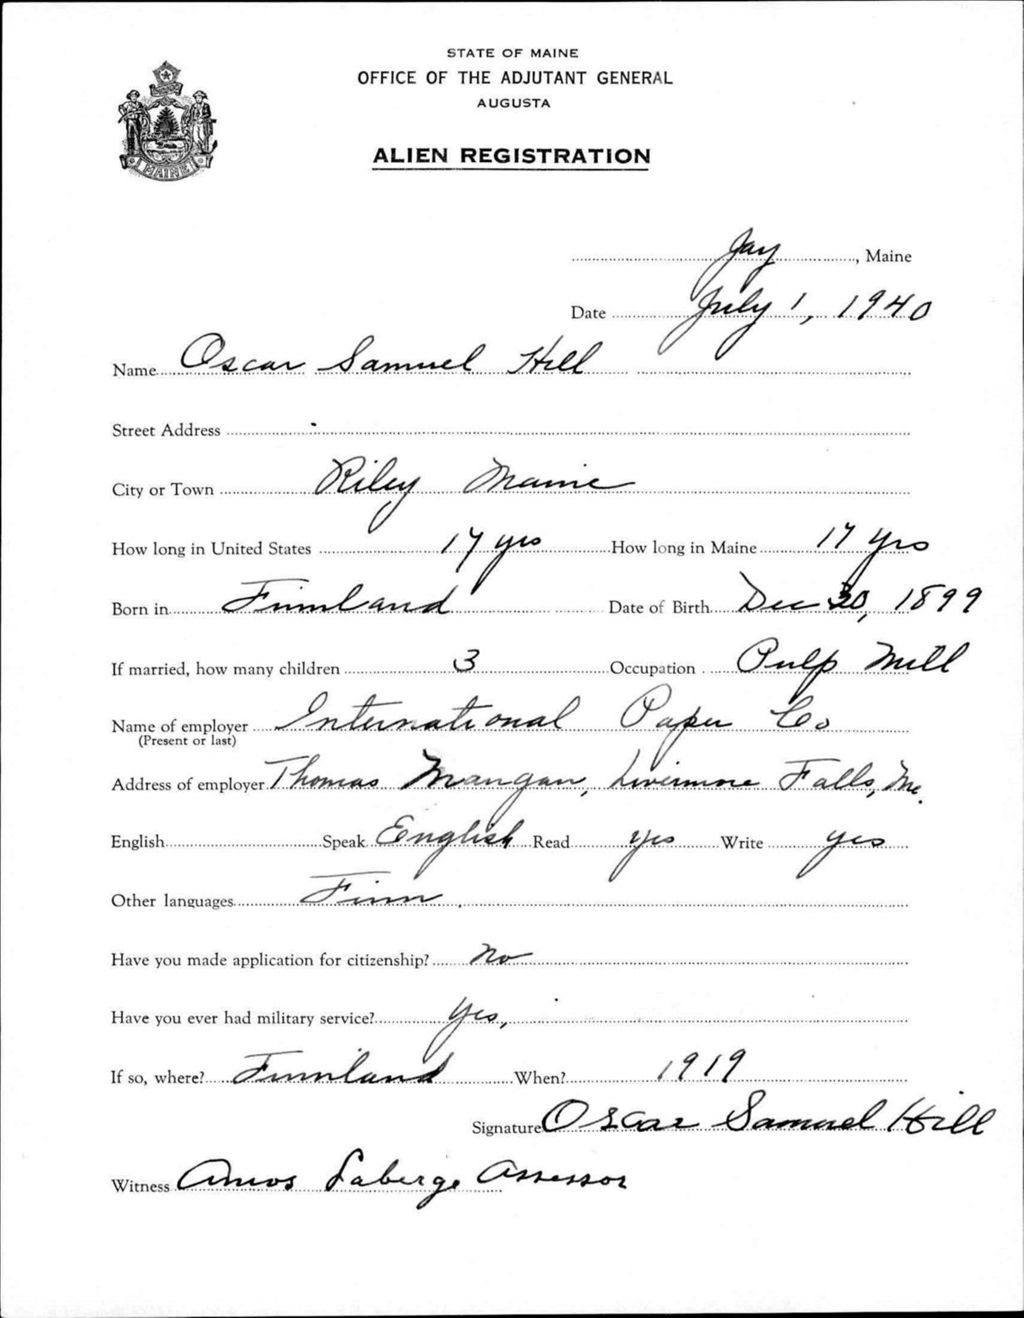 STATE OF MAINE
OFFICE OF THE ADJUTANT GENERAL
AUGUSTA
ALIEN REGISTRATION
MAINE
Jay, Maine
Date July 1, 1940
Name Oscar Samuel Hill
Street Address
City or Town Riley Maine
How long in United States 17 yrs How long in Maine 17 yrs
Born in Finnland Date of Birth Dec 30, 1899
If married, how many children 3 Occupation Pulp Mill
Name of employer International Paper Co
(Present or last)
Address of employer Thomas Mangan, Livermore Falls, Me.
English Speak English Read yes Write yes
Other languages Finn
Have you made application for citizenship? No
Have you ever had military service? Yes,
If so, where? Finnland When? 1919
Signature Oscar Samuel Hill
Witness Amos Laberge Assessor